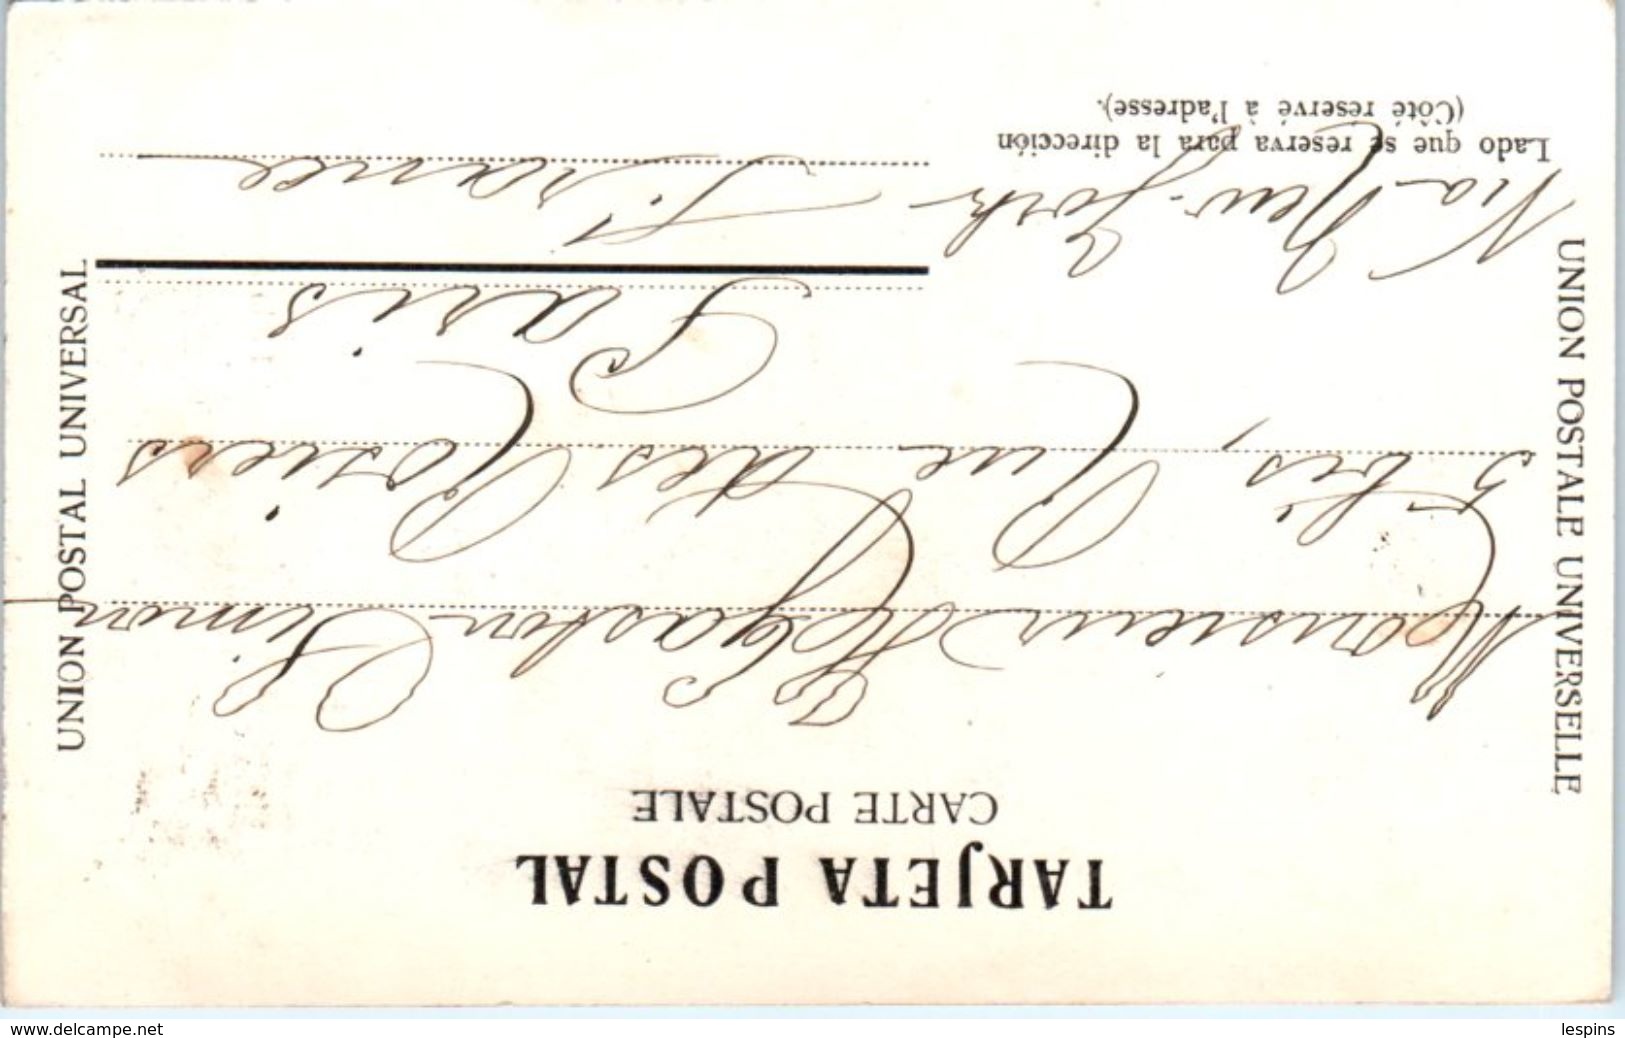 TARJETA POSTAL
CARTE POSTALE
UNION POSTALE UNIVERSELLE
UNION POSTAL UNIVERSAL
Monsieur Gaston Simon
5 bis, Rue des Rosiers
Paris
France
Via New-York
Lado que se reserva para la dirección
(Côté reservé à l'adresse).
www.delcampe.net
lespins